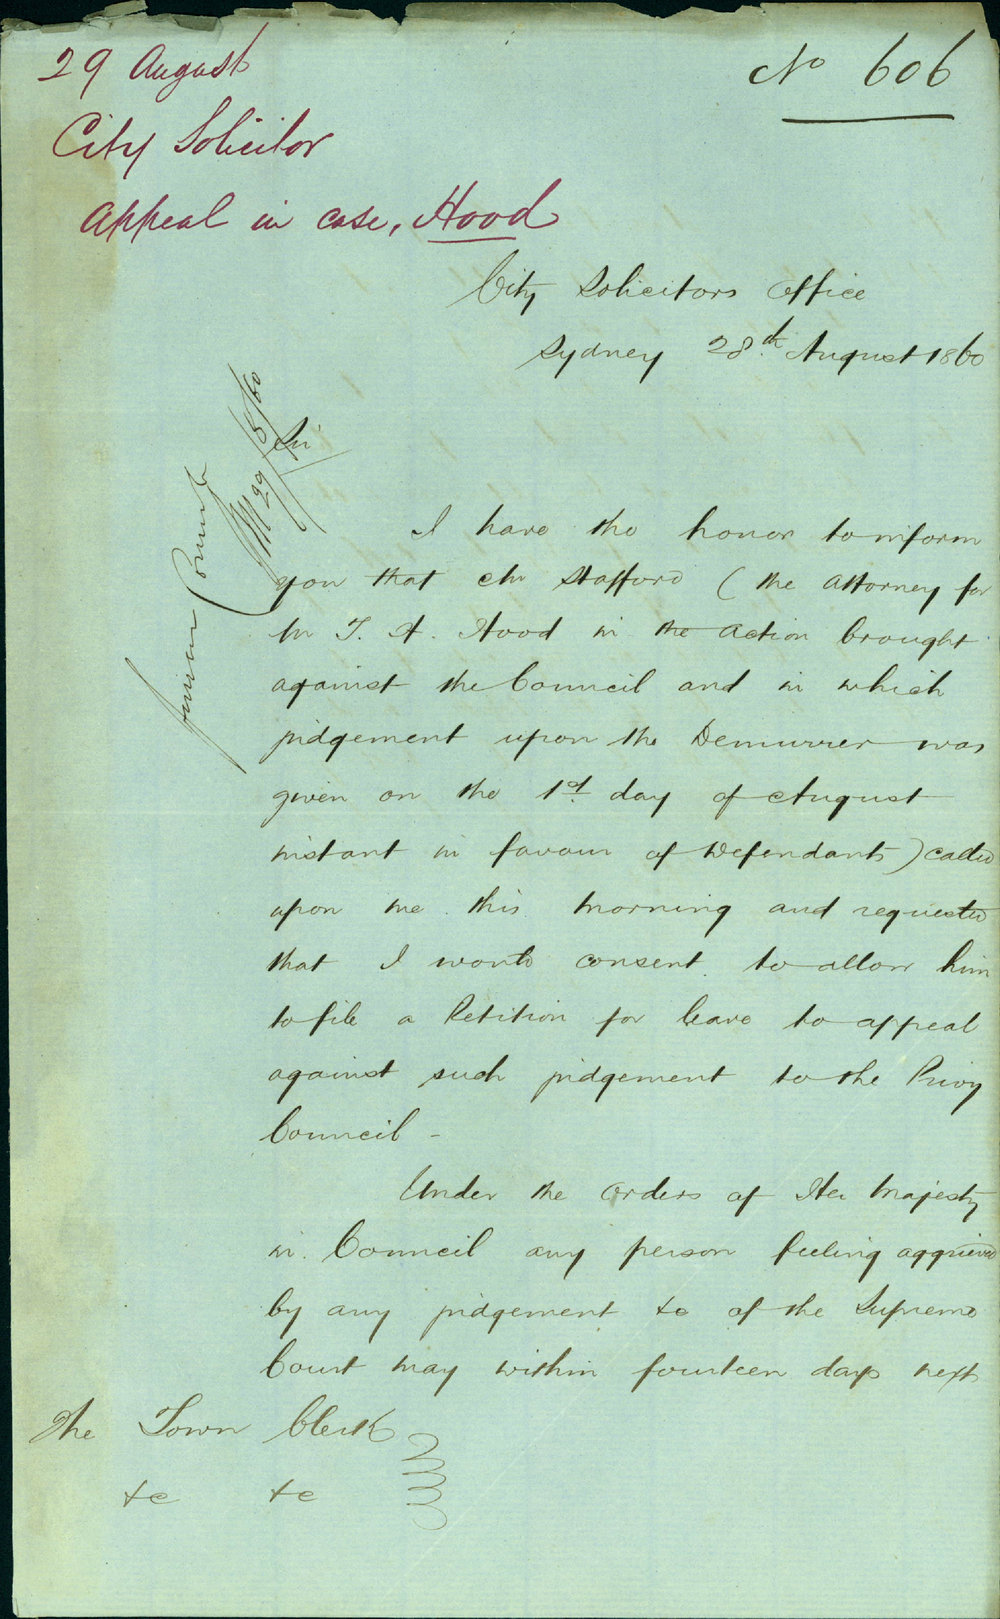 29 August
City Solicitor
Appeal in case, Hood
No 606
City Solicitors Office
Sydney 28th August 1860
29/8/60
Sir
I have the honor to inform
you that Mr Stafford (the Attorney for
Mr T. A. Hood in the action brought
against the Council and in which
judgement upon the Demurrer was
given on the 1st day of August
instant in favour of Defendants) called
upon me this morning and requested
that I would consent to allow him
to file a Petition for leave to appeal
against such judgement to the Privy
Council -
Under the orders of Her Majesty
in Council any person feeling aggrieved
by any judgement &c of the Supreme
Court may within fourteen days next
The Town Clerk
&c &c